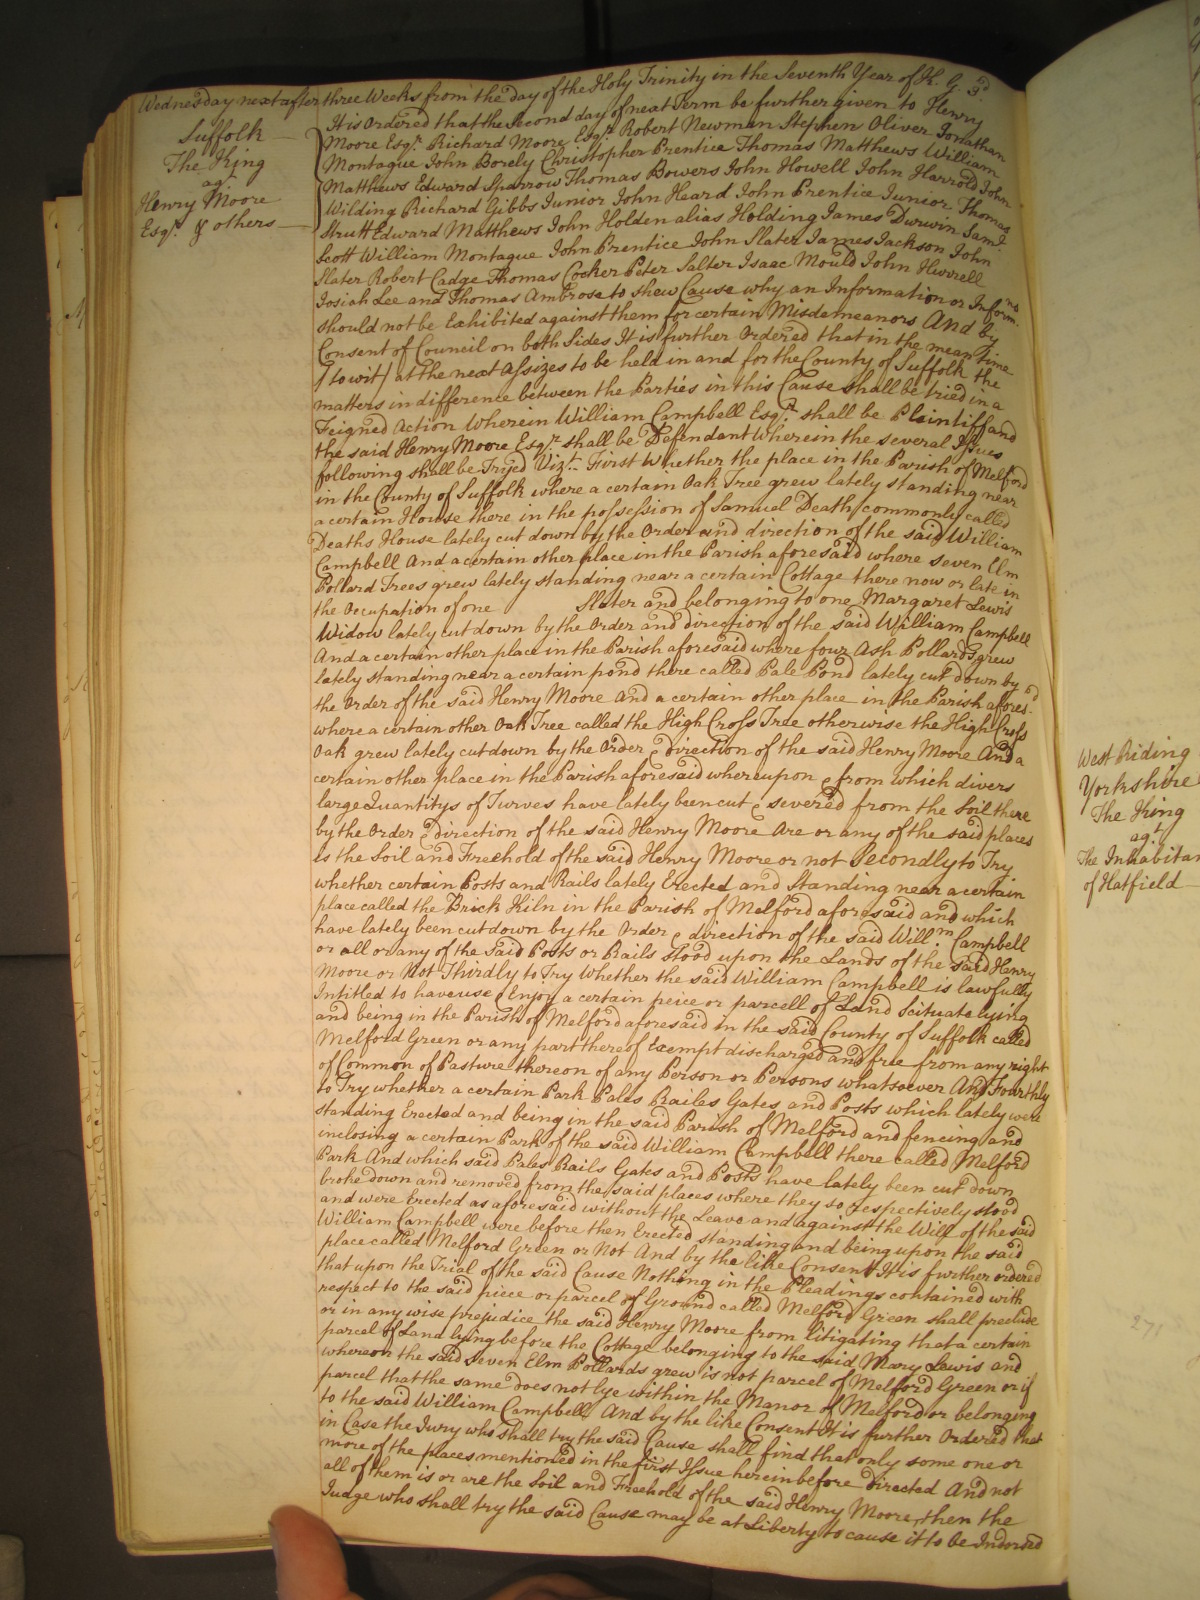 Wednesday next after three Weeks from the day of the Holy Trinity in the Seventh Year of K. G. 3.d
Suffolk
The King
ag.t
Henry Moore
Esq.r & others
It is Ordered that the Second day of next Term be further given to Henry
Moore Esq.r Richard Moore Esq.r Robert Newman Stephen Oliver Jonathan
Montague John Borely Christopher Prentice Thomas Matthews William
Matthews Edward Sparrow Thomas Bowers John Howell John Harrold John
Wilding Richard Gibbs Junior John Heard John Prentice Junior Thomas
Strutt Edward Matthews John Holden alias Holding James Durwin Sam.l
Scott William Montague John Prentice John Slater James Jackson John
Slater Robert Cadge Thomas Cocker Peter Salter Isaac Mould John Hurrell
Josiah Lee and Thomas Ambrose to shew Cause why an Information or Inform.ns
should not be Exhibited against them for certain Misdemeanors And by
Consent of Council on both Sides It is further Ordered that in the mean time
/ to wit / at the next Assizes to be held in and for the County of Suffolk the
matters in difference between the Parties in this Cause shall be tried in a
Feigned Action Wherein William Campbell Esq.r shall be Plaintiff and
the said Henry Moore Esq.r shall be Defendant Wherein the several Issues
following shall be Tryed Viz.t First Whether the place in the Parish of Melford
in the County of Suffolk where a certain Oak Tree grew lately standing near
a certain House there in the possession of Samuel Death commonly called
Deaths House lately cut down by the Order and direction of the said William
Campbell And a certain other place in the Parish aforesaid where seven Elm
Pollard Trees grew lately standing near a certain Cottage there now or late in
the Occupation of one Slater and belonging to one Margaret Lewis
Widow lately cut down by the Order and direction of the said William Campbell
And a certain other place in the Parish aforesaid where four Ash Pollards grew
lately standing near a certain pond there called Pale Pond lately cut down by
the Order of the said Henry Moore And a certain other place in the Parish afores.d
where a certain other Oak Tree called the High Cross Tree otherwise the High Cross
Oak grew lately cut down by the Order & direction of the said Henry Moore And a
certain other place in the Parish aforesaid whereupon & from which divers
large Quantitys of Turves have lately been cut & severed from the Soil there
by the Order & direction of the said Henry Moore Are or any of the said places
is the Soil and Freehold of the said Henry Moore or not Secondly to Try
whether certain Posts and Rails lately Erected and Standing near a certain
place called the Brick Kiln in the Parish of Melford aforesaid and which
have lately been cut down by the Order & direction of the said Will.m Campbell
or all or any of the said Posts or Rails stood upon the Lands of the said Henry
Moore or Not Thirdly to Try whether the said William Campbell is lawfully
Intitled to have use & Enjoy a certain peice or parcell of Land Scituate lying
and being in the Parish of Melford aforesaid in the said County of Suffolk called
Melford Green or any part thereof Exempt discharged and free from any right
of Common of Pasture thereon of any Person or Persons whatsoever And Fourthly
to Try whether a certain Park Pales Railes Gates and Posts which lately were
standing Erected and being in the said Parish of Melford and fencing and
inclosing a certain Park of the said William Campbell there called Melford
Park And which said Pales Rails Gates and Posts have lately been cut down
broke down and removed from the said places where they so respectively stood
and were Erected as aforesaid without the Leave and against the Will of the said
William Campbell were before then Erected standing and being upon the said
place called Melford Green or Not And by the like Consent It is further ordered
that upon the Trial of the said Cause Nothing in the Pleadings contained with
respect to the said piece or parcel of Ground called Melford Green shall preclude
or in any wise prejudice the said Henry Moore from litigating that a certain
parcel of Land lying before the Cottage belonging to the said Mary Lewis and
whereon the said seven Elm Pollards grew is not parcel of Melford Green or if
parcel that the same does not lye within the Manor of Melford or belonging
to the said William Campbell And by the like Consent It is further Ordered that
in Case the Jury who shall try the said Cause shall find that only some one or
more of the places mentioned in the first Issue hereinbefore directed And not
all of them is or are the Soil and Freehold of the said Henry Moore, then the
Judge who shall try the said Cause may be at Liberty to cause it to be Indorsed
West Riding
Yorkshire
The King
ag.t
The Inhabitan
of Hatfield
271